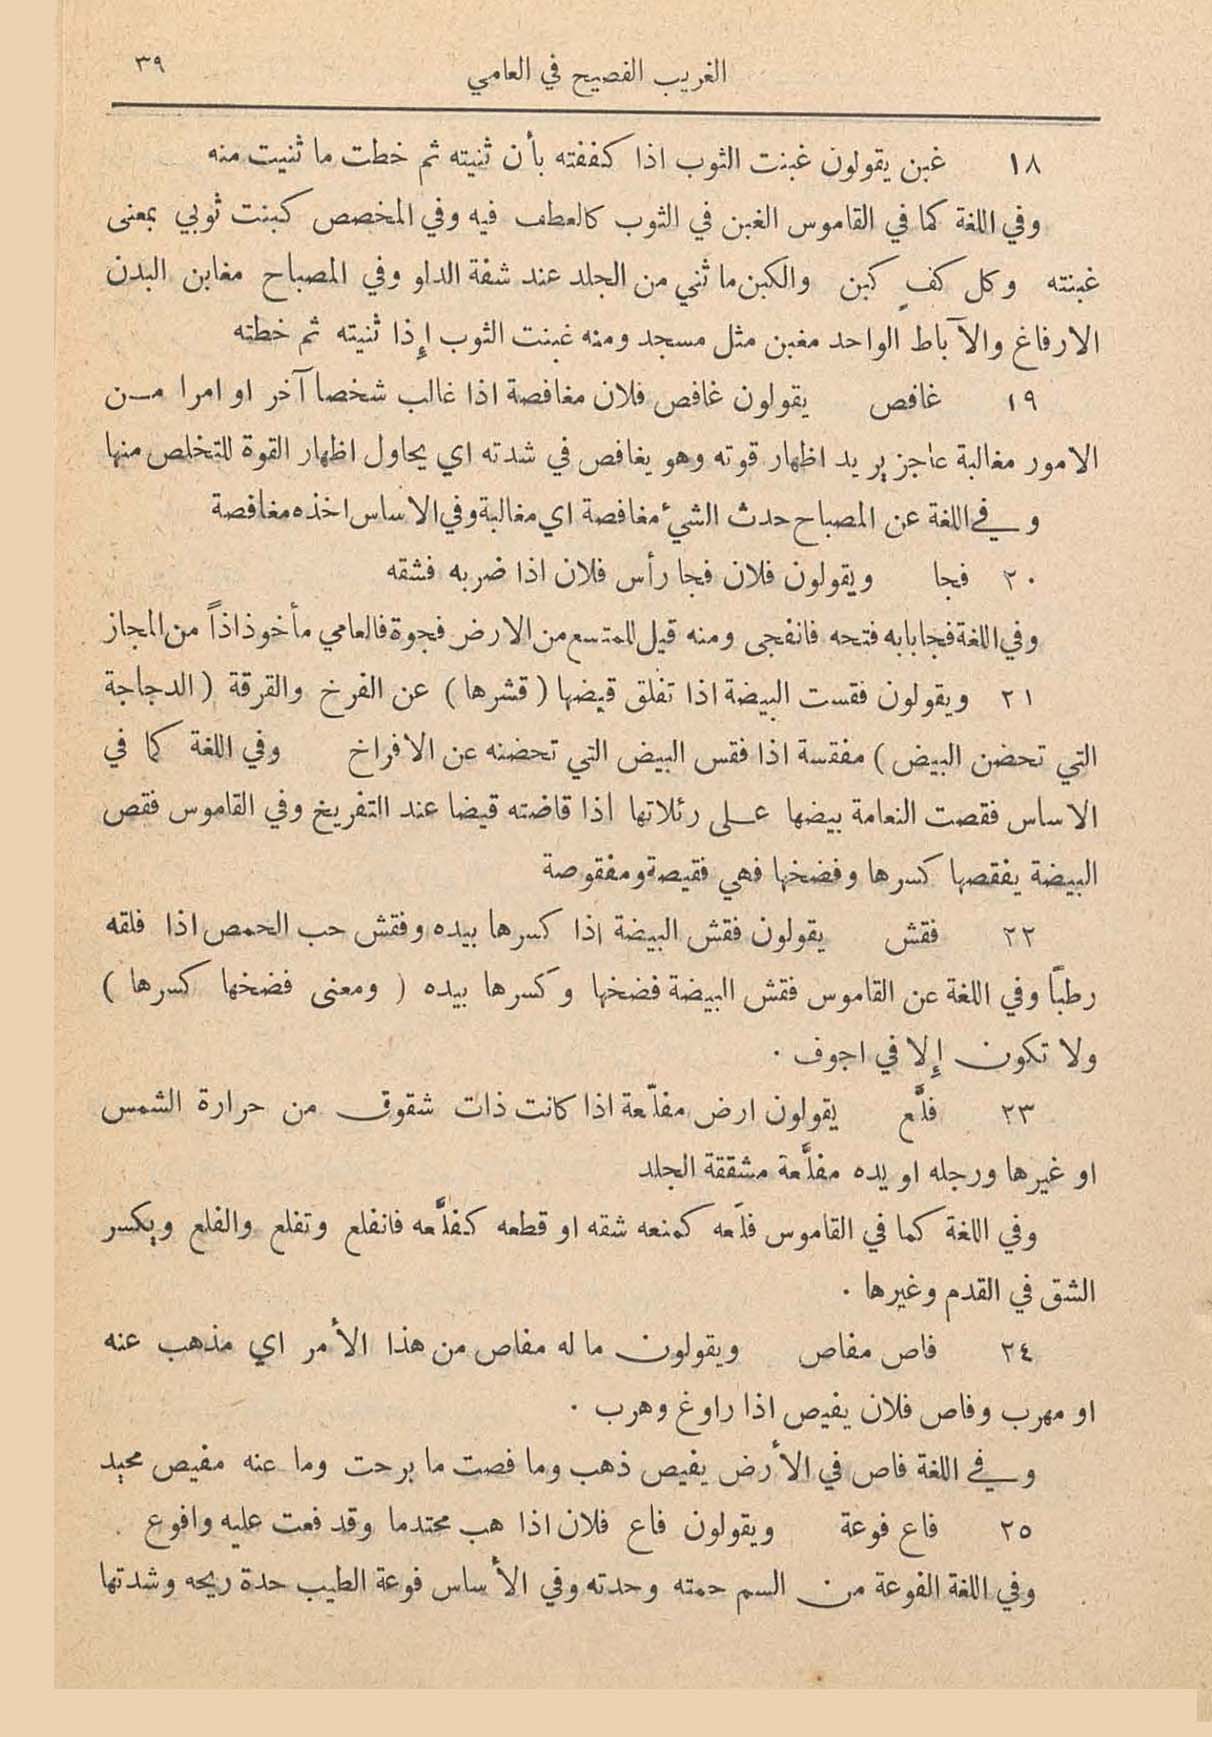 الغريب الفصيح في العامي ٣٩
١٨ غبن يقولون غبنت الثوب اذا كففته بأن ثنيته ثم خطت ما ثنيت منه
وفي اللغة كما في القاموس الغبن في الثوب كالعطف فيه وفي المخصص كبنت ثوبي بمعنى
غبنته وكل كفٍ كبن والكبن ما ثني من الجلد عند شفة الدلو وفي المصباح مغابن البدن
الارفاغ والآباط الواحد مغبن مثل مسجد ومنه غبنت الثوب إذا ثنيته ثم خطته
١٩ غافص يقولون غافص فلان مغافصة اذا غالب شخصا آخر او امرا من
الامور مغالبة عاجز يريد اظهار قوته وهو يغافص في شدته اي يحاول اظهار القوة للتخلص منها
وفي اللغة عن المصباح حدث الشيءُ مغافصة اي مغالبة وفي الاساس اخذه مغافصة
٢٠ فجا ويقولون فلان فجا رأس فلان اذا ضربه فشقه
وفي اللغة فجا بابه فتحه فانفجى ومنه قيل للمتسع من الارض فجوة فالعامي مأخوذ اذاً من المجاز
٢١ ويقولون فقست البيضة اذا تفلق قيضها (قشرها) عن الفرخ والقرقة (الدجاجة
التي تحضن البيض) مفقسة اذا فقس البيض التي تحضنه عن الافراخ وفي اللغة كما في
الاساس فقصت النعامة بيضها على رئلاتها اذا قاضته قيضا عند التفريخ وفي القاموس فقص
البيضة يفقصها كسرها وفضخها فهي فقيصة ومفقوصة
٢٢ فقش يقولون فقش البيضة اذا كسرها بيده وفقش حب الحمص اذا فلقه
رطبًا وفي اللغة عن القاموس فقش البيضة فضخها وكسرها بيده (ومعنى فضخها كسرها)
ولا تكون إلا في اجوف ٠
٢٣ فلَّع يقولون ارض مفلّعة اذا كانت ذات شقوق من حرارة الشمس
او غيرها ورجله او يده مفلَّعة مشققة الجلد
وفي اللغة كما في القاموس فلَعه كمنعه شقه او قطعه كفلَّعه فانفلع وتفلع والفلع ويكسر
الشق في القدم وغيرها ٠
٢٤ فاص مفاص ويقولون ما له مفاص من هذا الأمر اي مذهب عنه
او مهرب وفاص فلان يفيص اذا راوغ وهرب ٠
وفي اللغة فاص في الأرض يفيص ذهب وما فصت ما برحت وما عنه مفيص محيد
٢٥ فاع فوعة ويقولون فاع فلان اذا هب محتدما وقد فعت عليه وافوع ٠
وفي اللغة الفوعة من السم حمته وحدته وفي الأساس فوعة الطيب حدة ريحه وشدتها